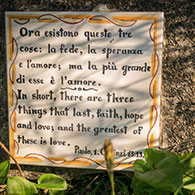 Ora esistono queste tre
cose: la fede, la speranza
e l'amore; ma la più grande
di esse è l'amore.
In short, there are three
things that last, faith, hope
and love; and the greatest of
these is love.
Paolo, 1.C nzi 13.13.